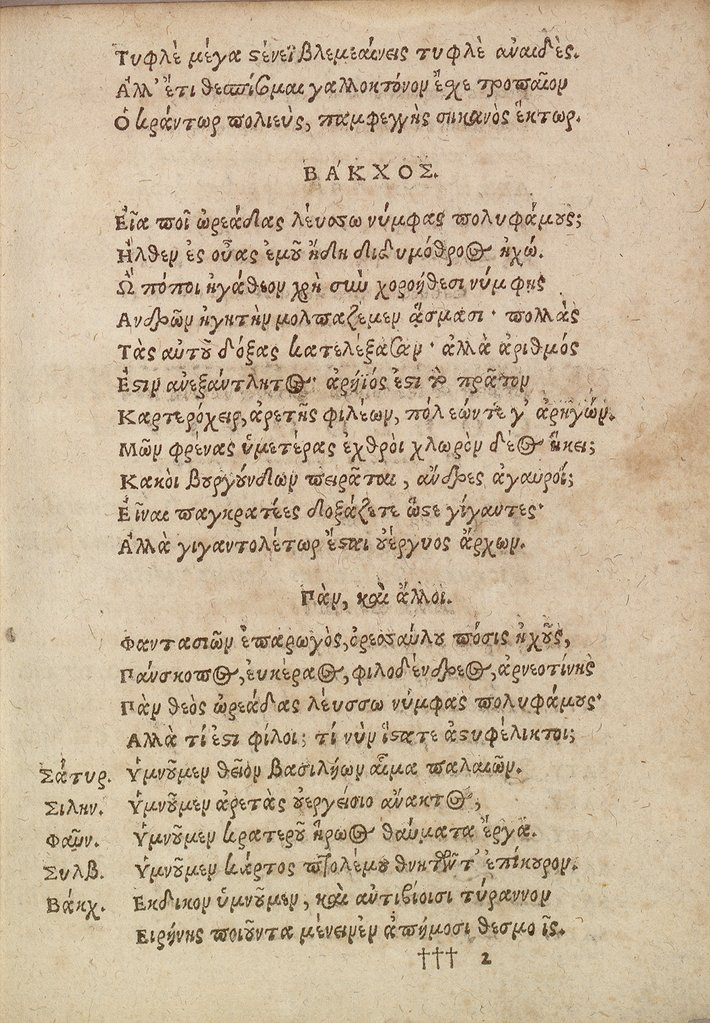 Τυφλὲ μέγα σένεϊ βλεμεαίνεις τυφλὲ ἀναιδὲς.
Ἀλλ' ἔτι θεσπίσομαι γαλλοκτόνον ἔχε τροπαῖον
Ὁ κράντωρ πολιεὺς, παμφεγγὴς σηκανὸς ἕκτωρ.
ΒΆΚΧΟΣ.
Εἶα ποῖ ὠρεάδας λεύσσω νύμφας πολυφάμους;
Ἦλθεν ἐς οὖας ἐμοῦ ἤδη διδυμόθροος ἠχώ.
Ὢ πόποι ἠγάθεον χρὴ σὺν χοροήθεσι νύμφῃς
Ἀνδρῶν ἡγητὴν μολπαζέμεν ᾄσμασι· πολλὰς
Τὰς αὐτοῦ δόξας κατελέξασαν· ἀλλὰ ἀριθμός
Ἐστιν ἀνεξάντλητος· ἀρήϊός ἐστι τὸ πρᾶτον
Καρτερόχειρ, ἀρετῆς φιλέων, πόλεών τε γ' ἀρηγών.
Μῶν φρένας ὑμετέρας ἐχθροὶ χλωρὸν δέος ἥκει;
Κακὸι βυργύνδιων πειρᾶται, ἄνδρες ἀγαυροί;
Εἶναι παγκρατέες δοξάζετε ὥστε γίγαντες·
Ἀλλὰ γιγαντολέτωρ ἔσται οὐέργυος ἄρχων.
Πὰν, καὶ ἄλλοι.
Φαντασιῶν ἐπαρωγὸς, ὀρεσσαύλου πόσις ἠχοῦς,
Πάνσκοπος, ἐυκέραος, φιλοδένδρεος, ἀρνεοτίνης
Πὰν θεὸς ὠρεάδας λεύσσω νύμφας πολυφάμους·
Ἀλλὰ τί ἐστι φίλοι; τί νῦν ἵστατε ἀστυφέλικτοι;
Σάτυρ. Ὑμνοῦμεν θεῖον βασιλήων αἷμα παλαιῶν.
Σιλην. Ὑμνοῦμεν ἀρετὰς οὐεργείσιο ἄνακτος,
Φαῦν. Ὑμνοῦμεν κρατεροῦ ἥρωος θαύματα ἔργα.
Συλβ. Ὑμνοῦμεν κάρτος πτολέμου θνητῶν τ' ἐπίκουρον.
Βάκχ. Ἔκδικον ὑμνοῦμεν, καὶ αὐτιβίοισι τύραννον
Εἰρήνης ποιοῦντα μένειν ἐν ἀπήμοσι θεσμοῖς.
††† 2